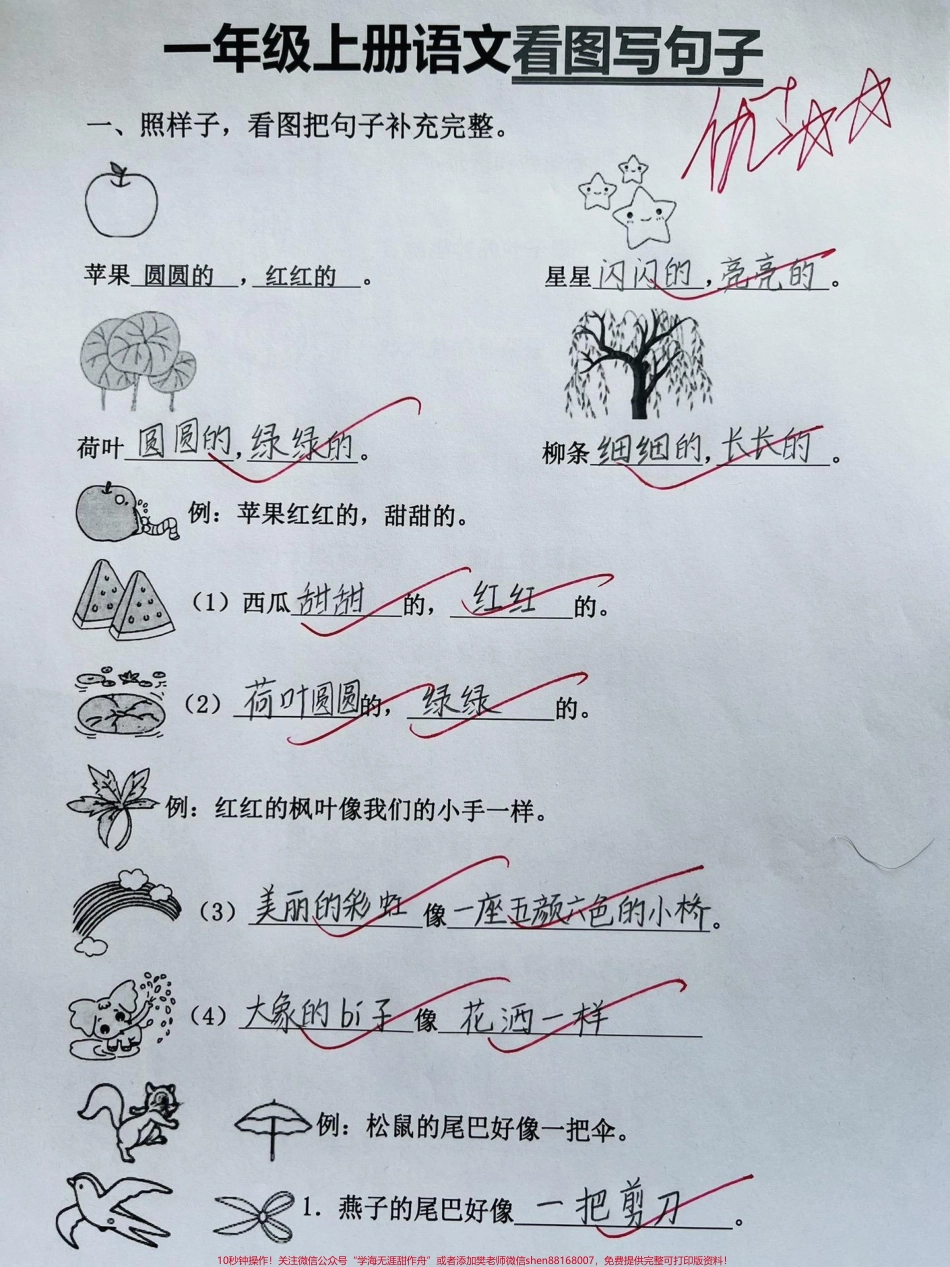 一年级上册语文看图写句子
优+☆☆
一、照样子，看图把句子补充完整。
苹果 圆圆的 ，红红的 。
星星闪闪的，亮亮的。
荷叶圆圆的，绿绿的。
柳条细细的，长长的。
例：苹果红红的，甜甜的。
（1）西瓜甜甜的，红红的。
（2）荷叶圆圆的，绿绿的。
例：红红的枫叶像我们的小手一样。
（3）美丽的彩虹像一座五颜六色的小桥。
（4）大象的bí子像花洒一样
例：松鼠的尾巴好像一把伞。
1. 燕子的尾巴好像一把剪刀。
10秒钟操作！关注微信公众号“学海无涯甜作舟”或者添加樊老师微信shen88168007，免费提供完整可打印版资料！